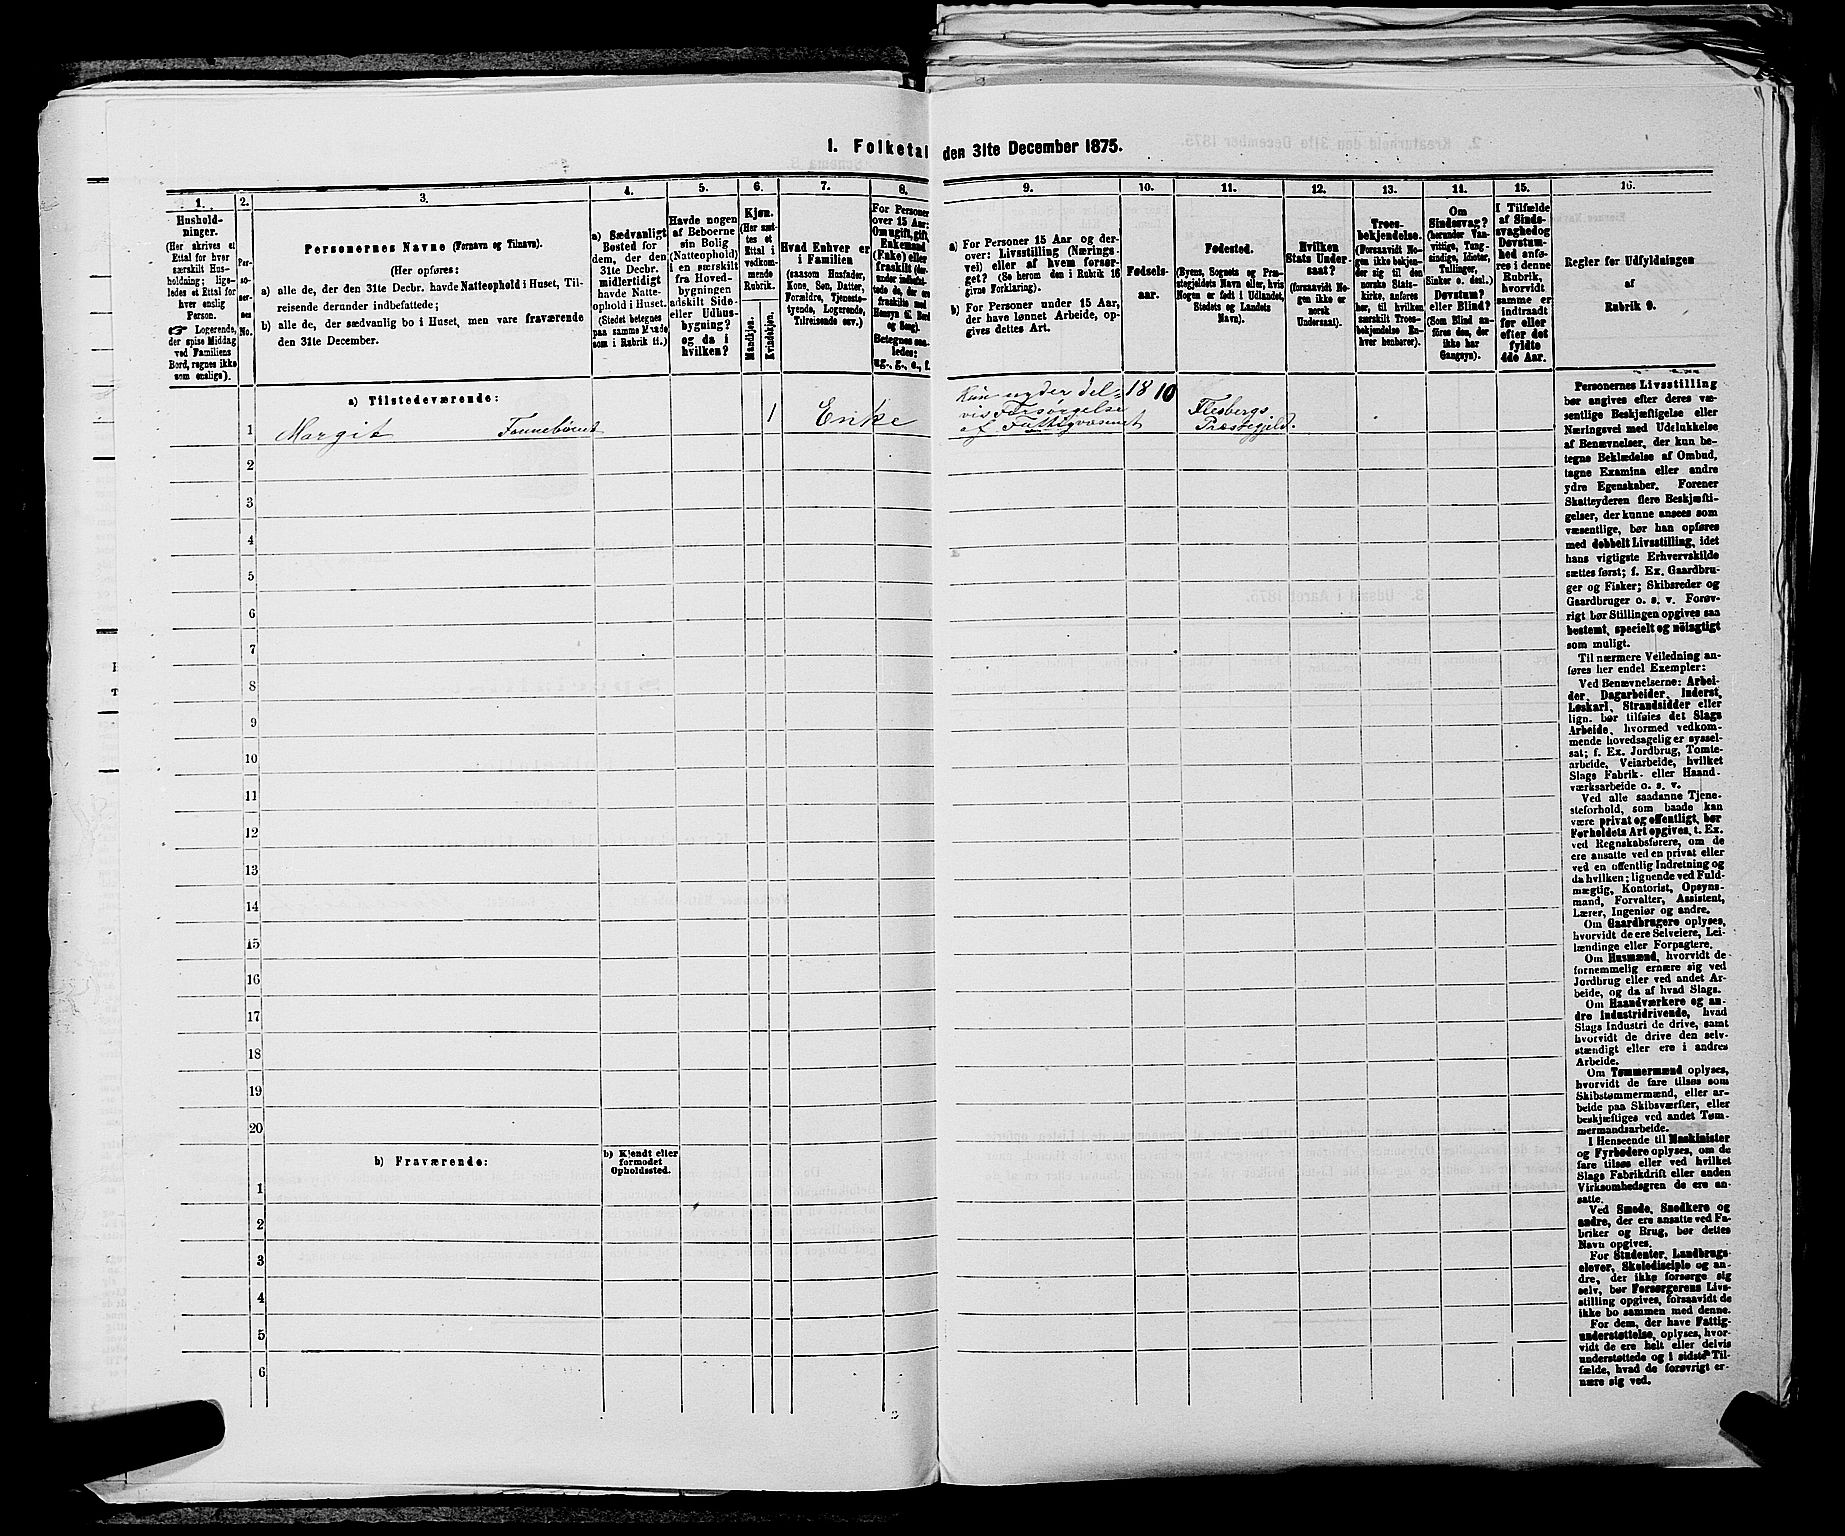 1. Folketal den 31te December 1875.
1.
2.
3.
4.
5.
6.
7.
8.
9.
10.
11.
12.
13.
14.
15.
16.
Hushold-
ninger.
(Her skrives et
Ettal for hver
særskilt Hus-
holdning; lige-
ledes et Ettal for
hver enslig
Person.
☞ Logerende,
der spise Middag
ved Familiens
Bord, regnes ikke
som enslige).
Per-
so-
ner-
nes
No.
Personernes Navne (Fornavn og Tilnavn).
(Her opføres:
a) alle de, der den 31te Decbr. havde Natteophold i Huset, Til-
reisende derunder indbefattede;
b) alle de, der sædvanlig bo i Huset, men vare fraværende
den 31te December.
a) Sædvanligt
Bosted for
dem, der den
31te Decbr.
midlertidigt
havde Natte-
ophold i Huset.
(Stedet betegnes
paa samme Maade
som i Rubrik 11.)
Havde nogen
af Beboerne
sin Bolig
(Natteophold)
i en særskilt
fra Hoved-
bygningen
adskilt Side-
eller Udhus-
bygning?
og da i
hvilken?
Kjøn.
(Her sæt-
tes et
Ettal i
vedkom-
mende
Rubrik.
Mandkjøn.
Kvindekjøn.
Hvad Enhver er
i Familien
(saasom Husfader,
Kone, Søn, Datter,
Forældre, Tjeneste-
tyende, Logerende,
Tilreisende osv.)
For Personer
over 15 Aar:
Om ugift, gift,
Enkemand
(Enke) eller
fraskilt (der-
under indbefat-
tede de, der ere
fraskilte med
Hensyn til Bord
og Seng).
Betegnes saa-
ledes:
ug., g., e., f.
a) For Personer 15 Aar og der-
over: Livsstilling (Nærings-
vei) eller af hvem forsør-
get? (Se herom den i Rubrik 16
givne Forklaring).
b) For Personer under 15 Aar,
der have lønnet Arbeide, op-
gives dettes Art.
Fødsels-
aar.
Fødested.
(Byens, Sognets og Præ-
stegjeldets Navn eller, hvis
Nogen er født i Udlandet,
Stedets og Landets
Navn).
Hvilken
Stats Under-
saat?
(forsaavidt No-
gen ikke er
norsk
Undersaat).
Troes-
bekjendelse.
(Forsaavidt No-
gen ikke bekjen-
der sig til den
norske Stats-
kirke, anføres
her, til hvilken
særskilt Troes-
bekjendelse En-
hver henhører).
Om
Sindssvag?
(herunder Van-
vittige, Tung-
sindige, Idioter,
Tullinger,
Sinker o. desl.)
Døvstum?
eller Blind?
(Som Blind an-
føres den, der
ikke har
Gangsyn).
I Tilfælde
af Sinds-
svaghed og
Døvstum-
hed anfø-
res i denne
Rubrik,
hvorvidt
samme er
indtraadt
før eller
efter det
fyldte
4de Aar.
Regler for Udfyldningen
af
Rubrik 9.
a) Tilstedeværende:
1 Margit Fonnebøent 1 Enke
Kun nyder del-
vis Forsørgelse
af Fattigvæsnet
1810
Flesbergs
Præstegjeld.
2
3
4
5
6
7
8
9
10
11
12
13
14
15
16
17
18
19
20
b) Fraværende:
b) Kjendt eller
formodet
Opholdssted.
1
2
3
4
5
6
Personernes Livsstilling
bør angives efter deres væ-
sentlige Beskjæftigelse eller
Næringsvei med Udelukkelse
af Benævnelser, der kun be-
tegne Beklædelse af Ombud,
tagne Examina eller andre
ydre Egenskaber. Forener
Skatteyderen flere Beskjæfti-
gelser, der kunne ansees som
væsentlige, bør han opføres
med dobbelt Livsstilling, idet
hans vigtigste Erhvervskilde
sættes først; f. Ex. Gaardbru-
ger og Fisker; Skibsreder og
Gaardbruger o. s. v. Forøv-
rigt bør Stillingen opgives saa
bestemt, specielt og nöiagtigt
som muligt.
Til nærmere Veiledning an-
føres her endel Exempler:
Ved Benævnelserne: Arbei-
der, Dagarbeider, Inderst,
Løskarl, Strandsidder eller
lign. bør tilføies det Slags
Arbeide, hvormed vedkom-
mende hovedsagelig er syssel-
sat; f. Ex. Jordbrug, Tomte-
arbeide, Veiarbeide, hvilket
Slags Fabrik- eller Haand-
værksarbeide o. s. v.
Ved alle saadanne Tjene-
steforhold, som baade kan
være privat og offentligt, bør
Forholdets Art opgives, t. Ex.
ved Regnskabsførere, om de
ere ansatte ved en privat eller
ved en offentlig Indretning og
da hvilken; lignende ved Fuld-
mægtig, Kontorist, Opsyns-
mand, Forvalter, Assistent,
Lærer, Ingeniør og andre.
Om Gaardbrugere oplyses,
hvorvidt de ere Selveiere, Lei-
lændinge eller Forpagtere.
Om Husmænd, hvorvidt de
fornemmelig ernære sig ved
Jordbrug eller ved andet Ar-
beide, og da af hvad Slags.
Om Haandværkere og an-
dre Industridrivende, hvad
Slags Industri de drive, samt
hvorvidt de drive den selv-
stændigt eller ere i andres
Arbeide.
Om Tømmermænd oplyses,
hvorvidt de fare tilsøs som
Skibstømmermænd, eller ar-
beide paa Skibsværfter, eller
beskjæftiges ved andet Tøm-
mermandsarbeide.
I Henseende til Maskinister
og Fyrbødere oplyses, om de
fare tilsøs eller ved hvilket
Slags Fabrikdrift eller anden
Virksomhedsgren de ere an-
satte.
Ved Smede, Snedkere og
andre, der ere ansatte ved Fa-
briker og Brug, bør dettes
Navn opgives.
For Studenter, Landbrugs-
elever, Skoledisciple og an-
dre, der ikke forsørge sig
selv, bør Forsørgerens Livs-
stilling opgives, forsaavidt de
ikke bo sammen med denne.
For dem, der have Fattig-
understøttelse, oplyses, hvor-
vidt de ere helt eller delvis
understøttede og i sidste Til-
fælde, hvad de forøvrigt er-
nære sig ved.